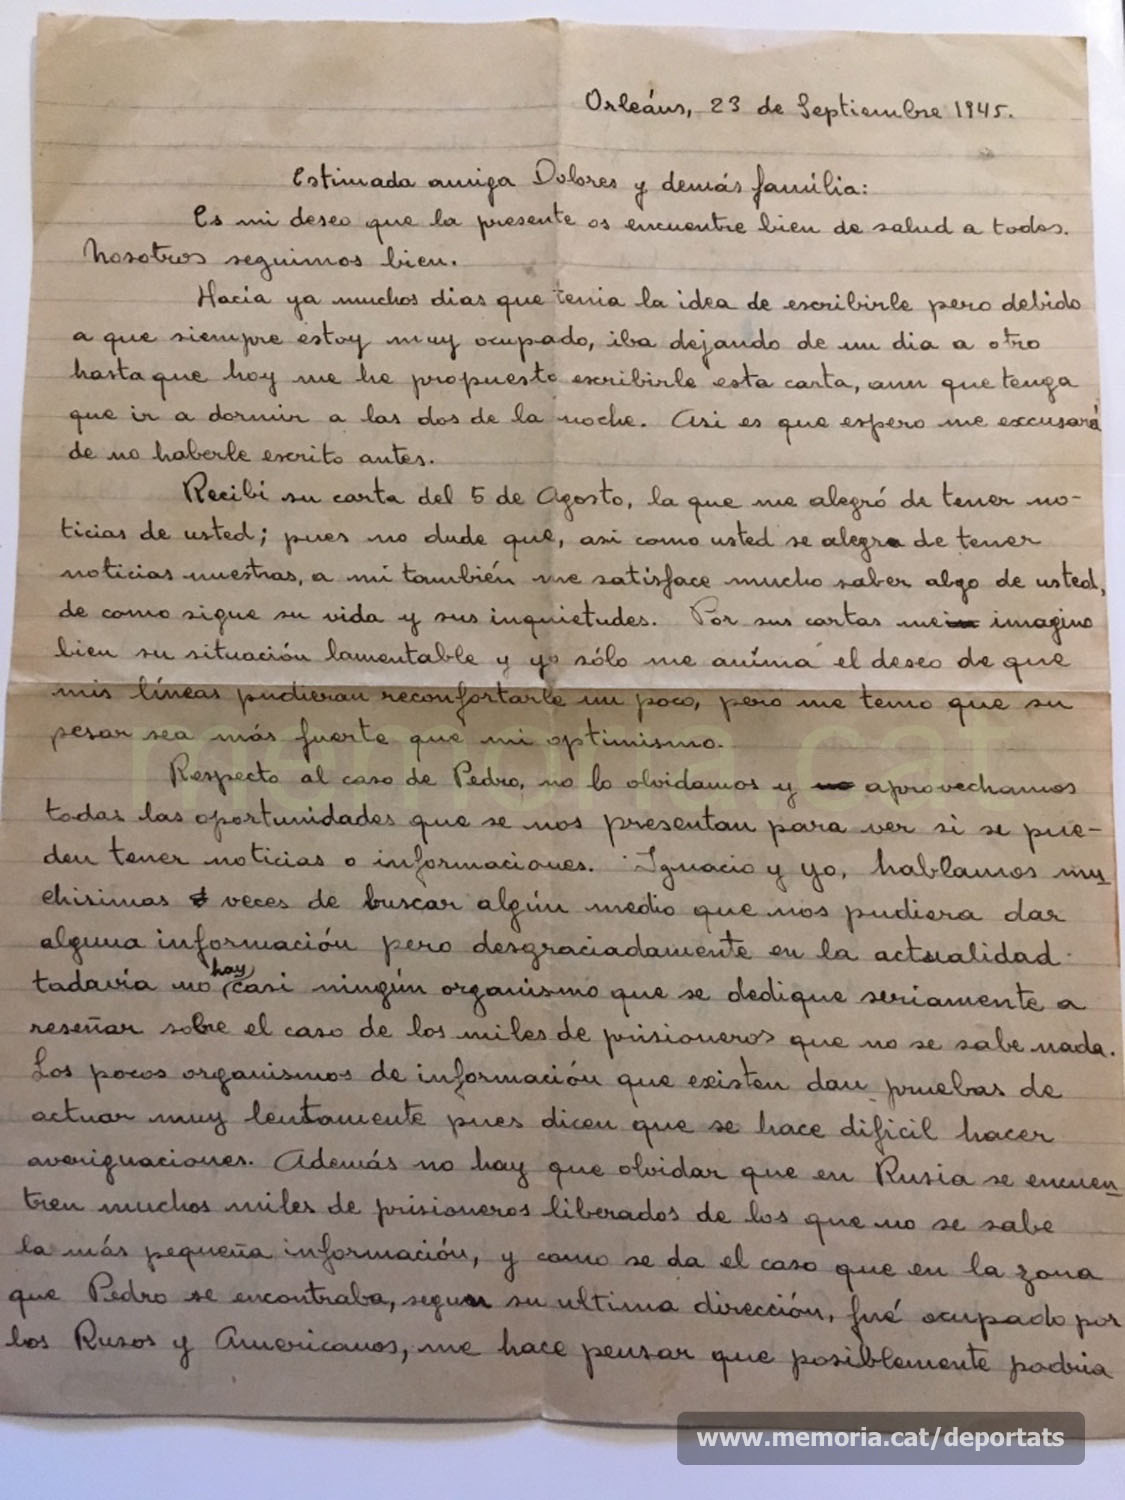 Orleáns, 23 de Septiembre 1945.
Estimada amiga Dolores y demás família:
Es mi deseo que la presente os encuentre bien de salud a todos.
Nosotros seguimos bien.
Hacía ya muchos dias que tenia la idea de escribirle pero debido
a que siempre estoy muy ocupado, iba dejando de un dia a otro
hasta que hoy me he propuesto escribirle esta carta, aun que tenga
que ir a dormir a las dos de la noche. Asi es que espero me excusará
de no haberle escrito antes.
Recibí su carta del 5 de Agosto, la que me alegró de tener no-
ticias de usted; pues no dude que, asi como usted se alegra de tener
noticias nuestras, a mi también me satisface mucho saber algo de usted,
de como sigue su vida y sus inquietudes. Por sus cartas me imagino
bien su situación lamentable y yo sólo me anima el deseo de que
mis líneas pudieran reconfortarle un poco, pero me temo que su
pesar sea más fuerte que mi optimismo.
Respecto al caso de Pedro, no lo olvidamos y no aprovechamos
todas las oportunidades que se nos presentan para ver si se pue-
den tener noticias o informaciones. Ignacio y yo, hablamos mu
chisimas veces de buscar algún medio que nos pudiera dar
alguna información pero desgraciadamente en la actualidad
tadavía no hay casi ningún organismo que se dedique seriamente a
reseñar sobre el caso de los miles de prisioneros que no se sabe nada.
Los pocos organismos de información que existen dan pruebas de
actuar muy lentamente pues dicen que se hace dificil hacer
averiguaciones. Además no hay que olvidar que en Rusia se encuen
tren muchos miles de prisioneros liberados de los que no se sabe
la más pequeña información, y como se da el caso que en la zona
que Pedro se encontraba, segun su ultima dirección, fué ocupado por
los Rusos y Americanos, me hace pensar que posiblemente podria
memoria.cat
www.memoria.cat/deportats